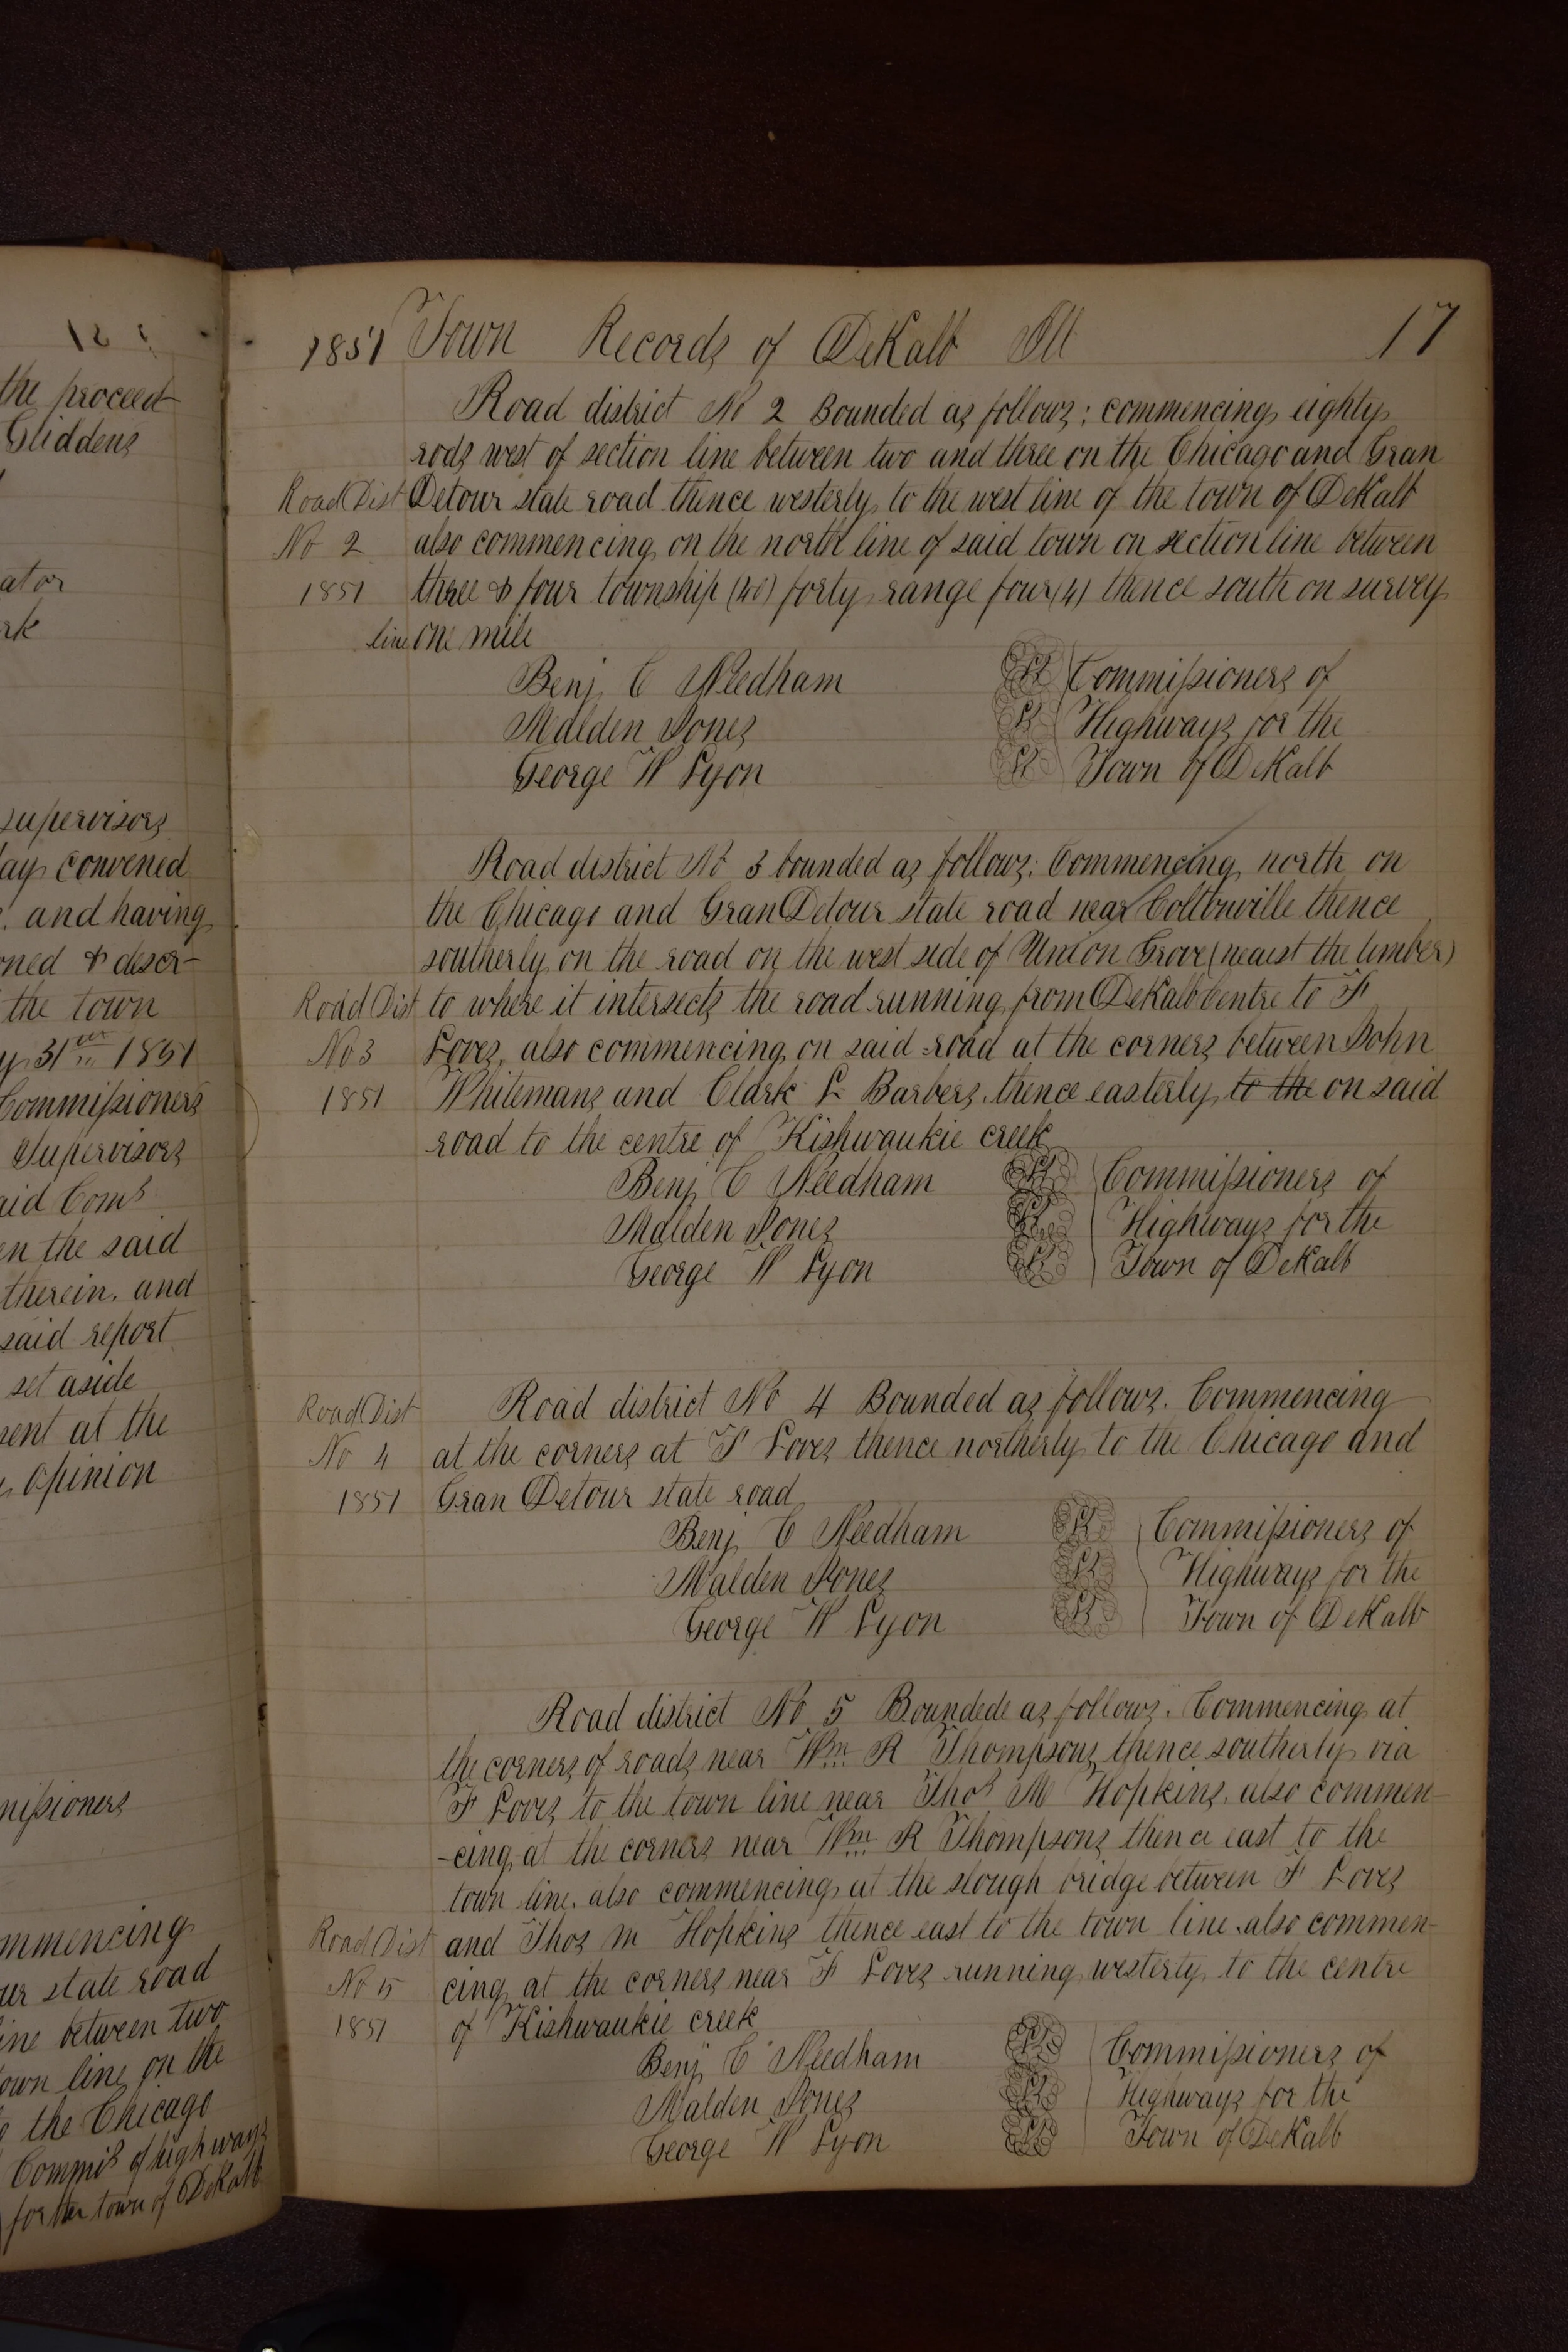 the proceed
Gliddens
ator
rk
supervisors
ay convened
. and having
ned & descr-
the town
y 31st 1851
Commissioners
Supervisors
aid Coms
en the said
therein. and
said report
set aside
sent at the
opinion
missioners
mmencing
ur state road
ine between two
own line on the
o the Chicago
Commis of highways
for the town of DeKalb
1851 Town Records of DeKalb Ill 17
Road district No 2 Bounded as follows; commencing eighty
rods west of section line between two and three on the Chicago and Gran
Road Dist Detour state road thence westerly to the west line of the town of DeKalb
No 2 also commencing on the north line of said town on section line between
1851 three & four township (40) forty range four (4) thence south on survey
line one mile
Benj C Needham LS Commissioners of
Malden Jones LS Highways for the
George W Lyon LS Town of DeKalb
Road district No 3 bounded as follows; Commencing north on
the Chicago and Gran Detour state road near Coltonville thence
southerly on the road on the west side of Union Grove (nearest the timber)
Road Dist to where it intersects the road running from DeKalb Centre to F
No 3 Loves, also commencing on said road at the corners between John
1851 Whitemans and Clark L Barbers, thence easterly to the on said
road to the centre of Kishwaukie creek
Benj C Needham LS Commissioners of
Malden Jones LS Highways for the
George W Lyon LS Town of DeKalb
Road Dist Road district No 4 Bounded as follows. Commencing
No 4 at the corners at F Loves thence northerly to the Chicago and
1851 Gran Detour state road
Benj C Needham LS Commissioners of
Malden Jones LS Highways for the
George W Lyon LS Town of DeKalb
Road district No 5 Boundede as follows. Commencing at
the corners of roads near Wm R Thompsons thence southerly via
F Loves to the town line near Thos M Hopkins, also commen-
-cing at the corners near Wm R Thompsons thence east to the
town line, also commencing at the slough bridge between F Loves
Road Dist and Thos M Hopkins thence east to the town line, also commen-
No 5 cing at the corners near F Loves running westerly to the centre
1851 of Kishwaukie creek
Benj C Needham LS Commissioners of
Malden Jones LS Highways for the
George W Lyon LS Town of DeKalb